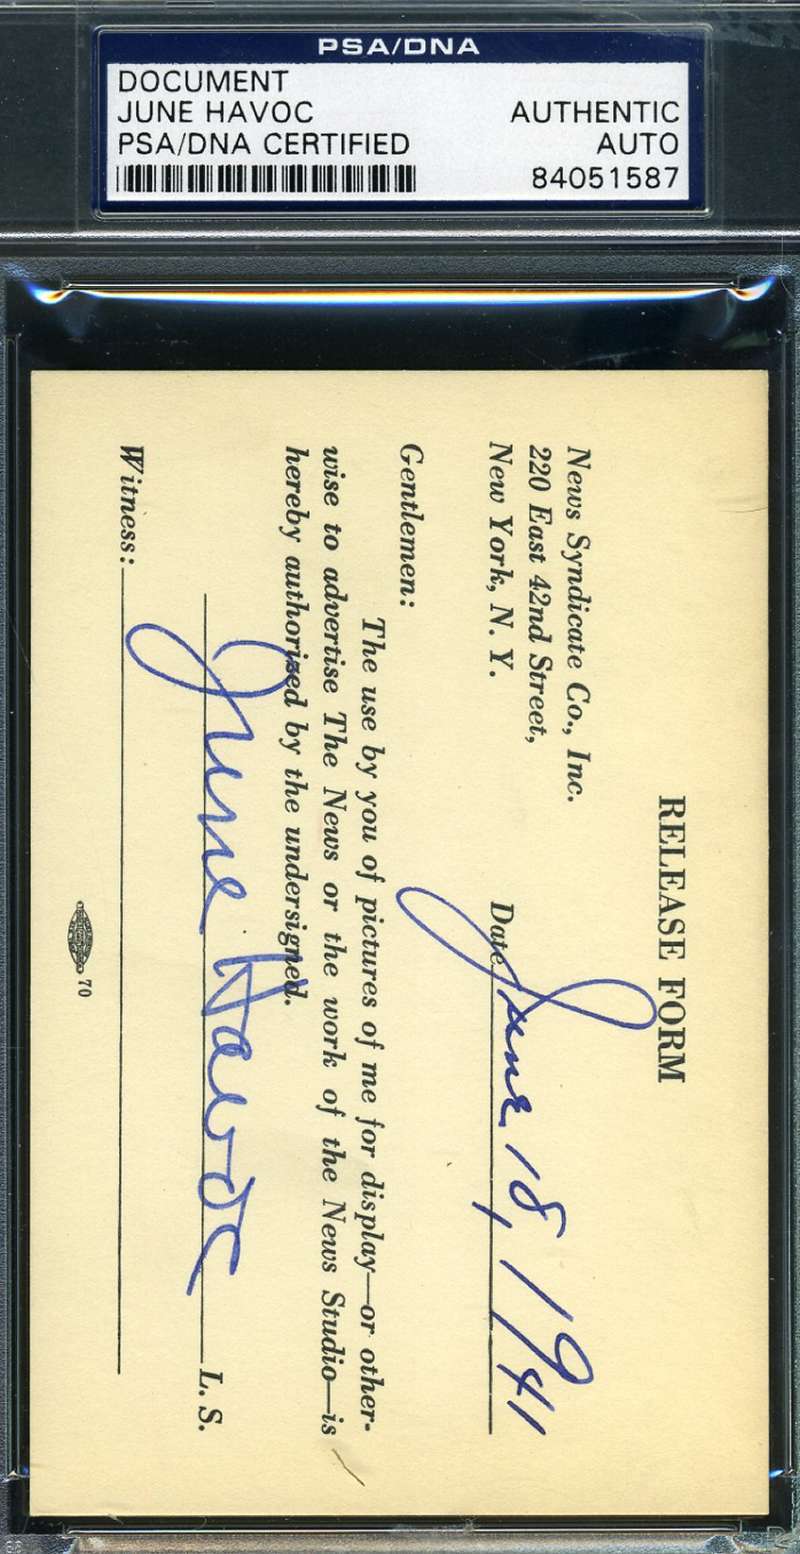 PSA/DNA
DOCUMENT
JUNE HAVOC
PSA/DNA CERTIFIED
AUTHENTIC
AUTO
84051587
RELEASE FORM
News Syndicate Co., Inc.
220 East 42nd Street,
New York, N. Y.
Date June 18, 1941
Gentlemen:
The use by you of pictures of me for display—or other-
wise to advertise The News or the work of the News Studio—is
hereby authorized by the undersigned.
June Havoc L. S.
Witness:
70